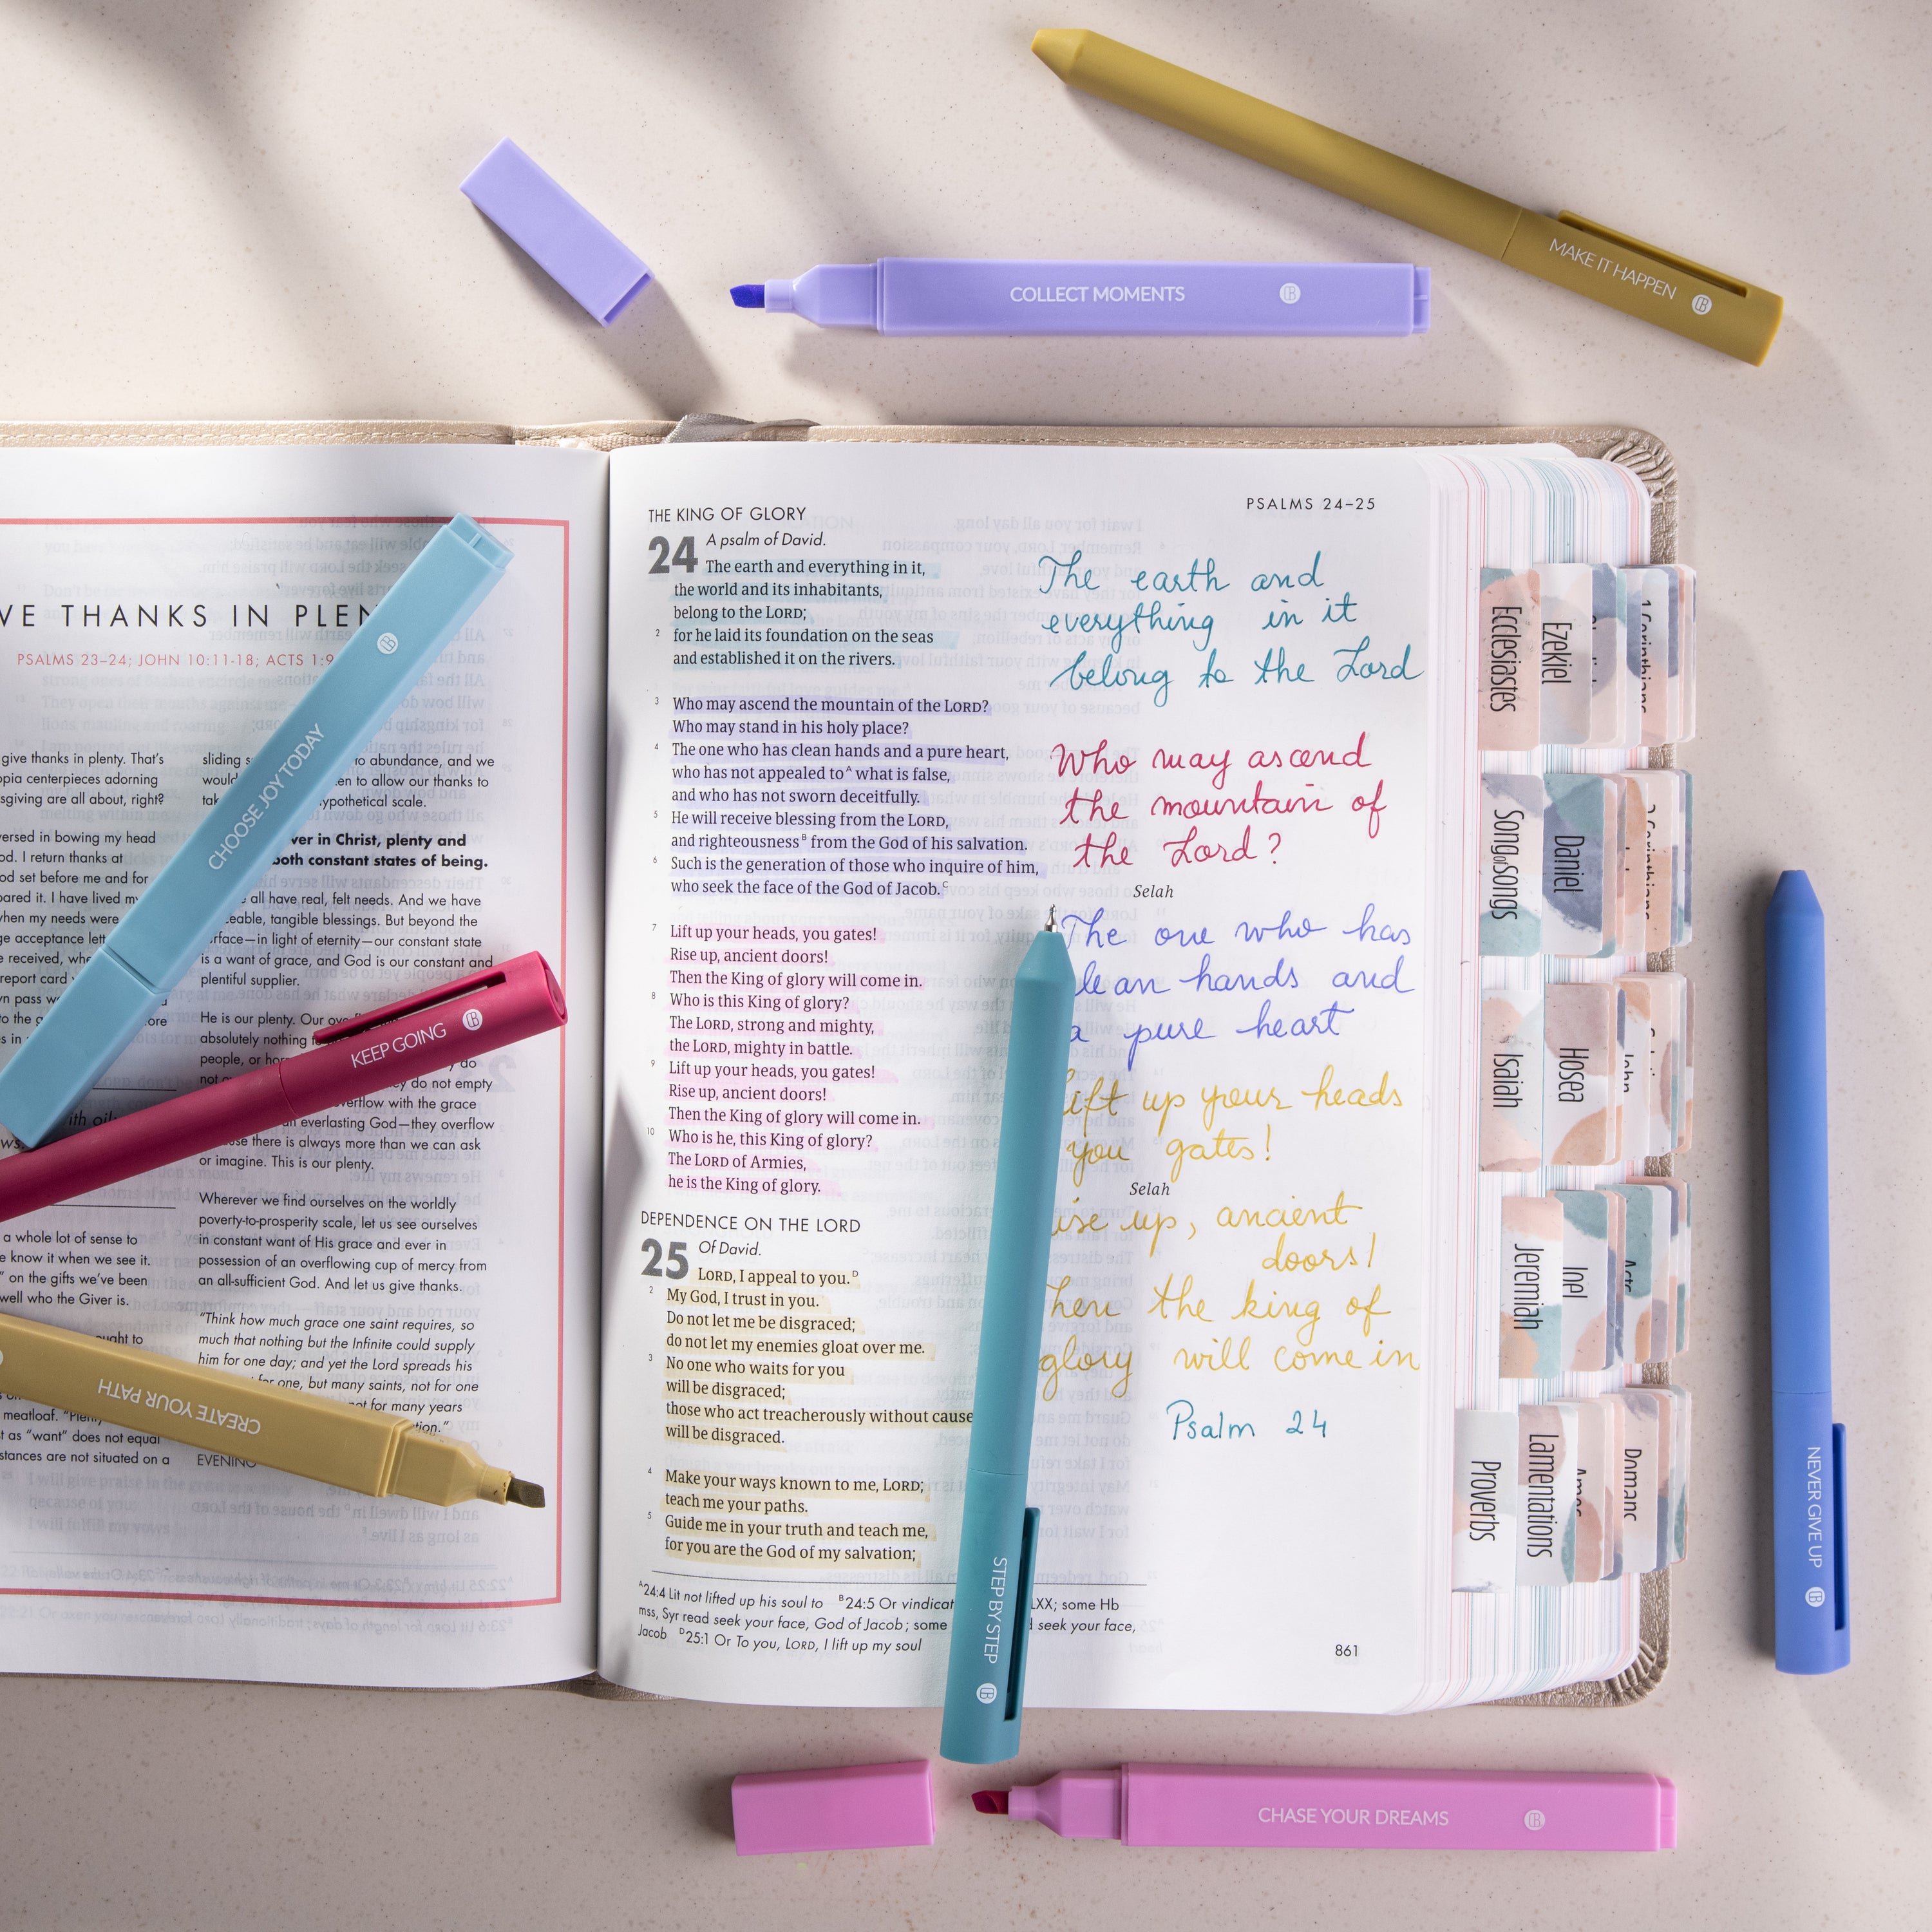 MAKE IT HAPPEN
COLLECT MOMENTS
THANKS IN PLEN
PSALMS 23–24; JOHN 10:11-18; ACTS 1:9
give thanks in plenty. That's
centerpieces adorning
are all about, right?
in bowing my head
I return thanks at
set before me and for
it. I have lived
when my needs were
acceptance
received,
report card
pass
to the
sliding
to abundance, and we
would
to allow our thanks to
hypothetical scale.
in Christ, plenty and
both constant states of being.
all have real, felt needs. And we have
tangible blessings. But beyond the
in light of eternity—our constant state
is a want of grace, and God is our constant and
plentiful supplier.
He is our plenty. Our
absolutely nothing
people, or
do
they do not empty
overflow with the grace
an everlasting God—they overflow
there is always more than we can ask
or imagine. This is our plenty.
Wherever we find ourselves on the worldly
poverty-to-prosperity scale, let us see ourselves
in constant want of His grace and ever in
possession of an overflowing cup of mercy from
an all-sufficient God. And let us give thanks.
"Think how much grace one saint requires, so
much that nothing but the Infinite could supply
him for one day; and yet the Lord spreads his
for one, but many saints, not for one
for many years
EVENING
a whole lot of sense to
know it when we see it.
on the gifts we've been
well who the Giver is.
meatloaf. "Plenty
as "want" does not equal
are not situated on a
CHOOSE JOY TODAY
KEEP GOING
CREATE YOUR PATH
PSALMS 24–25
THE KING OF GLORY
24 A psalm of David.
The earth and everything in it,
the world and its inhabitants,
belong to the LORD;
2 for he laid its foundation on the seas
and established it on the rivers.
3 Who may ascend the mountain of the LORD?
Who may stand in his holy place?
4 The one who has clean hands and a pure heart,
who has not appealed to A what is false,
and who has not sworn deceitfully.
5 He will receive blessing from the LORD,
and righteousness B from the God of his salvation.
6 Such is the generation of those who inquire of him,
who seek the face of the God of Jacob. C
Selah
7 Lift up your heads, you gates!
Rise up, ancient doors!
Then the King of glory will come in.
8 Who is this King of glory?
The LORD, strong and mighty,
the LORD, mighty in battle.
9 Lift up your heads, you gates!
Rise up, ancient doors!
Then the King of glory will come in.
10 Who is he, this King of glory?
The LORD of Armies,
he is the King of glory.
Selah
DEPENDENCE ON THE LORD
25 Of David.
LORD, I appeal to you. D
2 My God, I trust in you.
Do not let me be disgraced;
do not let my enemies gloat over me.
3 No one who waits for you
will be disgraced;
those who act treacherously without cause
will be disgraced.
4 Make your ways known to me, LORD;
teach me your paths.
5 Guide me in your truth and teach me,
for you are the God of my salvation;
A 24:4 Lit not lifted up his soul to B 24:5 Or LXX; some Hb
mss, Syr read seek your face, God of Jacob; some seek your face,
Jacob D 25:1 Or To you, LORD, I lift up my soul
861
The earth and
everything in it
belong to the Lord
Who may ascend
the mountain of
the Lord?
The one who has
lean hands and
a pure heart
ift up your heads
you gates!
ise up, ancient
doors!
hen the king of
glory will come in
Psalm 24
STEP BY STEP
Ecclesiastes
Ezekiel
1 Corinthians
Song of songs
Daniel
2 Corinthians
Isaiah
Hosea
John
Jeremiah
Joel
Acts
Proverbs
Lamentations
Amos
Romans
NEVER GIVE UP
CHASE YOUR DREAMS